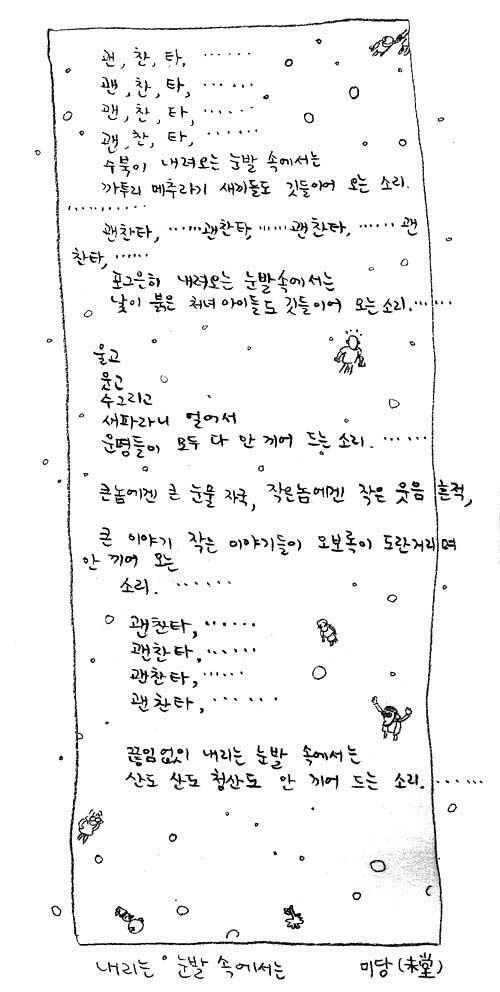 괜, 찬, 타, ······
괜, 찬, 타, ······
괜, 찬, 타, ······
괜, 찬, 타, ······
수북이 내려오는 눈발 속에서는
까투리 메추라기 새끼들도 깃들이어 오는 소리.
··············
괜찬타, ······괜찬타, ······괜찬타, ······ 괜
찬타, ······
포그은히 내려오는 눈발속에서는
낯이 붉은 처녀 아이들도 깃들이어 오는 소리.······
울고
웃고
수그리고
새파라니 얼어서
운명들이 모두 다 안 끼어 드는 소리. ······
큰놈에겐 큰 눈물 자국, 작은놈에겐 작은 웃음 흔적,
큰 이야기 작은 이야기들이 오보록이 도란거리며
안 끼어 오는
소리. ······
괜찬타, ······
괜찬타, ······
괜찬타, ······
괜찬타, ······
끊임없이 내리는 눈발 속에서는
산도 산도 청산도 안 끼어 드는 소리. ······
내리는 눈발 속에서는 미당 (未堂)